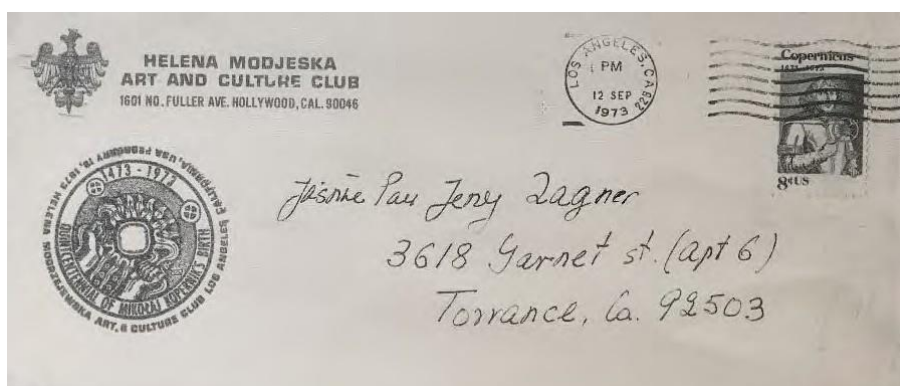 HELENA MODJESKA
ART AND CULTURE CLUB
1601 NO. FULLER AVE. HOLLYWOOD, CAL. 90046
LOS ANGELES, CA
PM
12 SEP
1973
Copernicus
1473-1973
8¢ US
1473 - 1973
QUINCENTENNIAL OF MIKOŁAJ KOPERNIK'S BIRTH
HELENA MODRZEJEWSKA ART. & CULTURE CLUB LOS ANGELES CALIFORNIA, USA FEBRUARY 19, 1973
Pau Jerry Zagner
3618 Garnet st. (apt 6)
Torrance, Ca. 92503